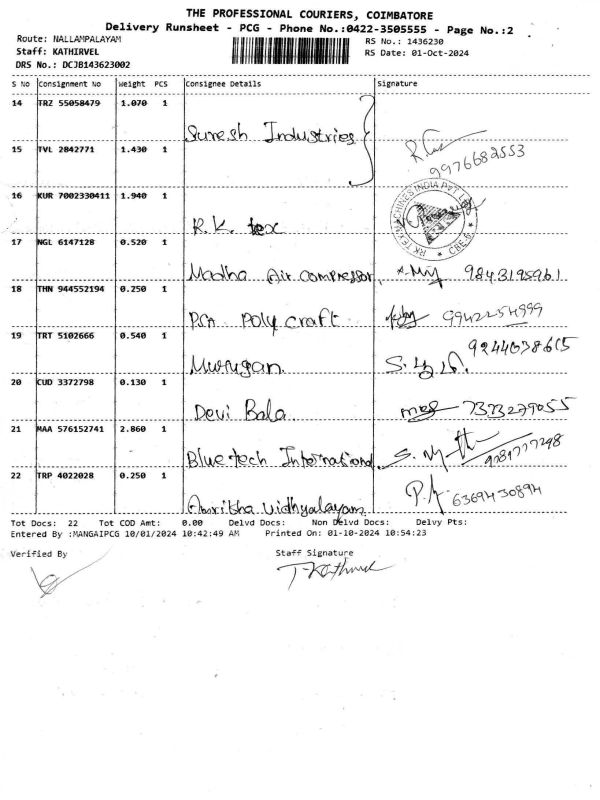 THE PROFESSIONAL COURIERS, COIMBATORE
Delivery Runsheet - PCG - Phone No.:0422-3505555 - Page No.:2
Route: NALLAMPALAYAM RS No.: 1436230
Staff: KATHIRVEL RS Date: 01-Oct-2024
DRS No.: DCJB143623002
S No Consignment No Weight PCS Consignee Details Signature
14 TRZ 55058479 1.070 1
Suresh Industries
15 TVL 2842771 1.430 1
9976682553
16 KUR 7002330411 1.940 1
R.K. tex
RK TEXMACHINES INDIA PVT LTD CBE-6
17 NGL 6147128 0.520 1
Madha Air compressor 9843195961
18 THN 944552194 0.250 1
PSA Poly craft 9942254999
19 TRT 5102666 0.540 1
Murugan. 9244038615
20 CUD 3372798 0.130 1
Devi Bala 7373279055
21 MAA 576152741 2.860 1
Bluetech International
22 TRP 4022028 0.250 1
Amritha vidhyalayam 6369430894
Tot Docs: 22 Tot COD Amt: 0.00 Delvd Docs: Non Delvd Docs: Delvy Pts:
Entered By :MANGAIPCG 10/01/2024 10:42:49 AM Printed On: 01-10-2024 10:54:23
Verified By Staff Signature
T-Kathirvel